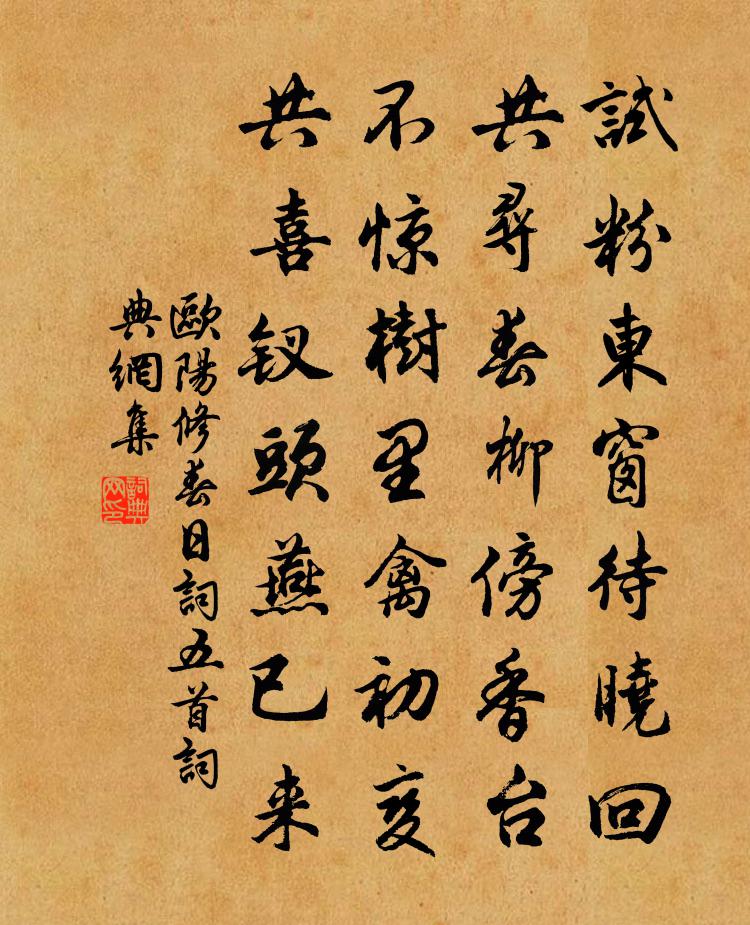 試粉東窗待曉回
共尋春柳傍香台
不惊樹里禽初变
共喜钗頭燕已来
歐陽修春日詞五首詞
典網集
詞典网印